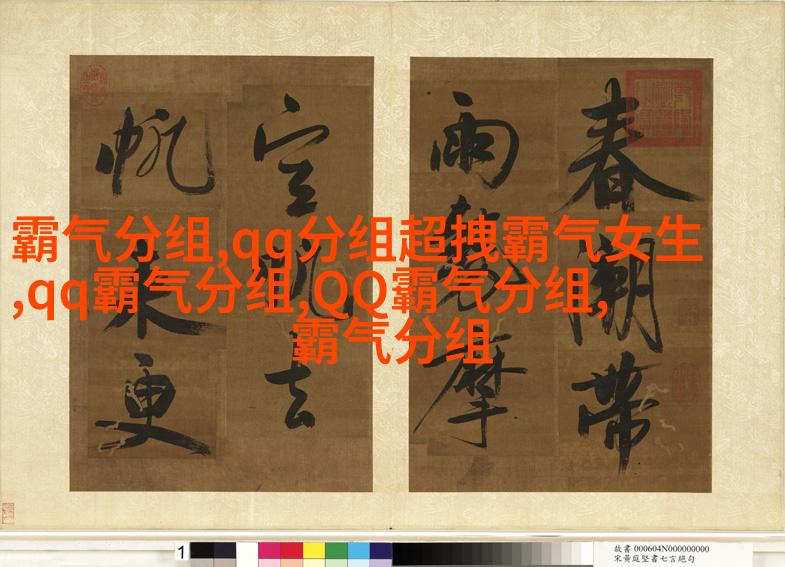 霸气分组,qq分组超拽霸气女生
,qq霸气分组,QQ霸气分组,
霸气分组
春潮帶
雨摩
去
帆更
1
故書 000604N000000000
宋黃庭堅書七言絕句